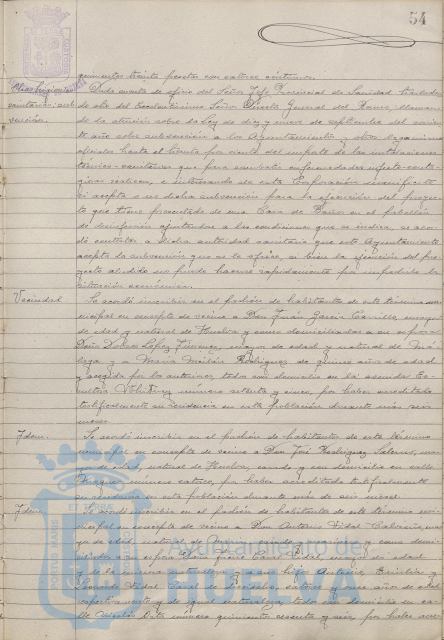 54
quinientas treinta pesetas con catorce céntimos.
Dada cuenta de oficio del Señor Jefe Provincial de Sanidad trasladando
sanitarias: sub-
vención.
de otro del Excelentísimo Señor Director General del Ramo, llamando
la atención sobre la Ley de diez y nueve de septiembre del corriente
año sobre subvención a los Ayuntamientos y otros organismos
oficiales hasta el treinta por ciento del importe de las instalaciones
técnico-sanitarias que para combatir enfermedades infecto-conta-
giosas realicen, e interesando de esta Corporación manifieste
si acepta o no dicha subvención para la ejecución del proyec-
to que tiene presentado de una Casa de Baños en el pabellón
de desinfección ajustándose a las condiciones que se indica, se acor-
dó contestar a dicha autoridad sanitaria que este Ayuntamiento
acepta la subvención que se le ofrece, si bien la ejecución del pro-
yecto aludido no puede hacerse rápidamente por impedirlo la
situación económica.
Vecindad.
Se acordó inscribir en el padrón de habitantes de este término mu-
nicipal en concepto de vecino a Don Juan García Carrillo, mayor
de edad y natural de Huelva y como domiciliados a su esposa
Doña Dolores López Jiménez, mayor de edad y natural de Má-
laga y a María Rodríguez de quince años de edad
y acogida por los anteriores, todos con domicilio en la
número setenta y cinco, por haber acreditado
testificalmente su residencia en esta población durante más seis
meses.
Idem.
Se acordó inscribir en el padrón de habitantes de este término
municipal en concepto de vecino a Don José Rodríguez
mayor de edad, natural de Huelva, casado y con domicilio en calle
número catorce, por haber acreditado testificalmente
su residencia en esta población durante más de seis meses.
Idem.
Se acordó inscribir en el padrón de habitantes de este término mu-
nicipal en concepto de vecino a Don Antonio Vidal
mayor de edad, natural de casado y como domi-
ciliados a su esposa Doña Juana mayor de edad
y de la misma naturaleza y a sus hijos Antonio, Emilia y
Vidal de catorce y once años de edad
respectivamente y de igual naturaleza, todos con domicilio en ca-
lle número quinientos sesenta y seis, por haber acre-
Ayuntamiento de
HUELVA
PORTUS MARIS